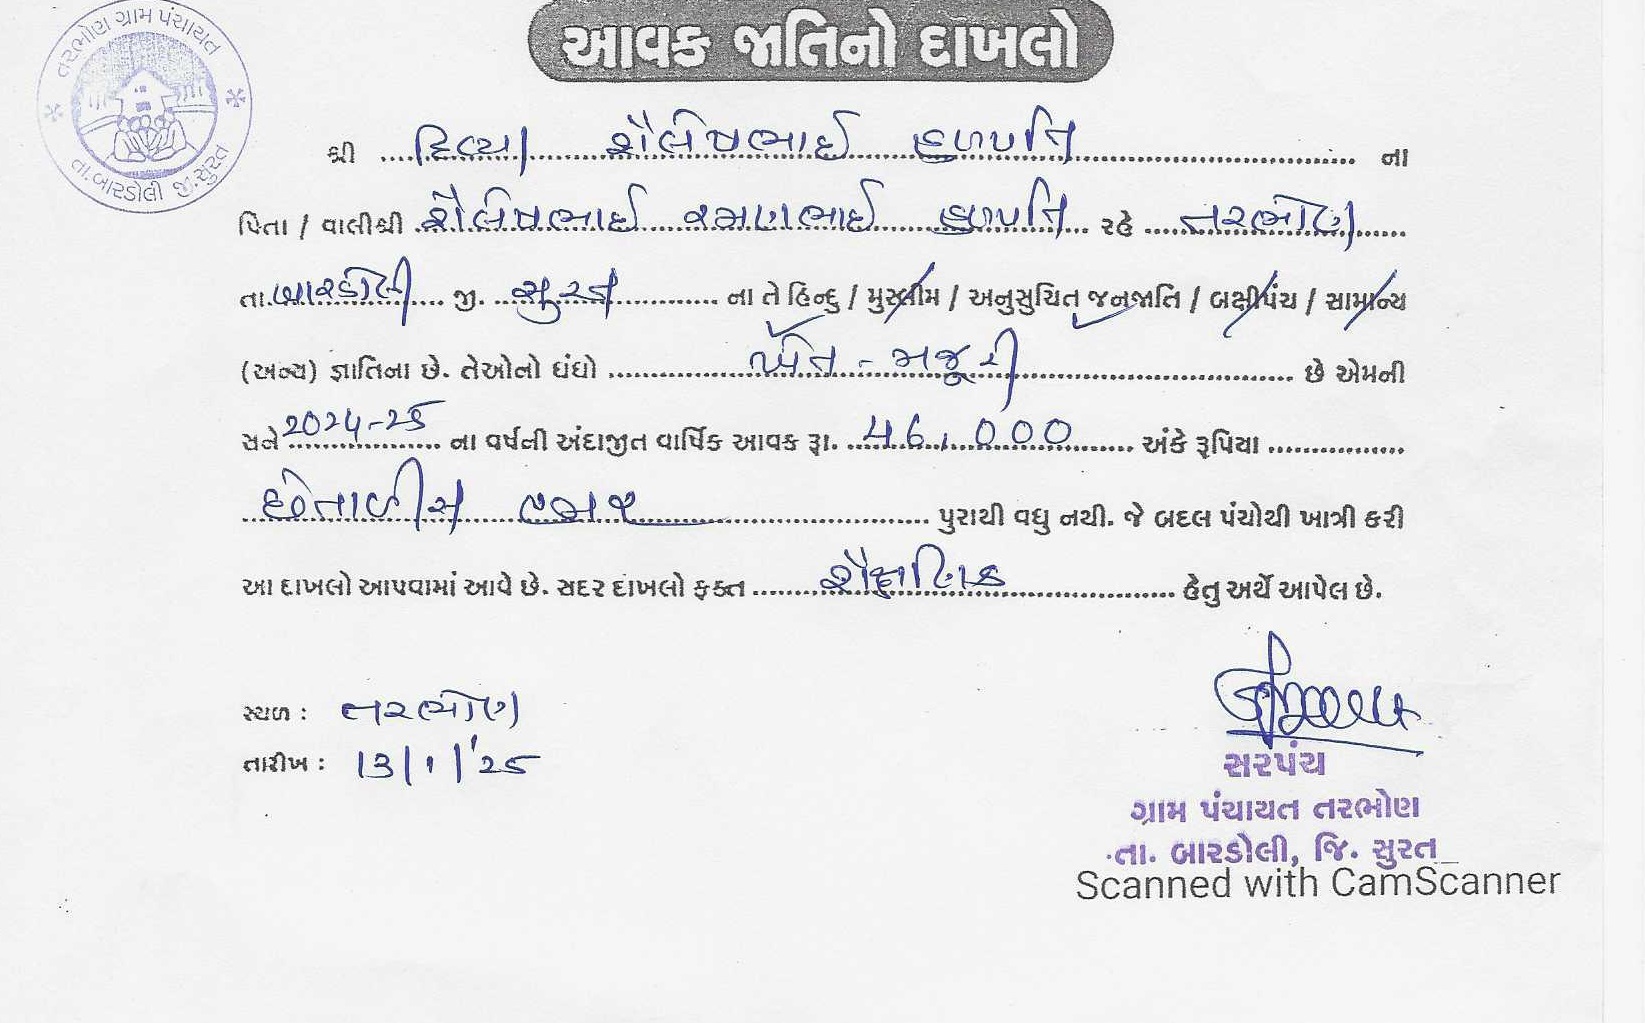 તરભોણ ગ્રામ પંચાયત
તા.બારડોલી જી.સુરત
આવક જાતિનો દાખલો
શ્રી દિવ્યા શૈલેષભાઈ હળપતિ ના
પિતા / વાલીશ્રી શૈલેષભાઈ રમણભાઈ હળપતિ રહે તરભોણ
તા. બારડોલી જી. સુરત ના તે હિન્દુ / મુસ્લીમ / અનુસુચિત જનજાતિ / બક્ષીપંચ / સામાન્ય
(અન્ય) જ્ઞાતિના છે. તેઓનો ધંધો ખેત - મજૂરી છે એમની
સને ૨૦૨૪-૨૫ ના વર્ષની અંદાજીત વાર્ષિક આવક રૂા. 46,000 અંકે રૂપિયા
છેતાળીસ હજાર પુરાથી વધુ નથી. જે બદલ પંચોથી ખાત્રી કરી
આ દાખલો આપવામાં આવે છે. સદર દાખલો ફક્ત શૈક્ષણિક હેતુ અર્થે આપેલ છે.
સ્થળ : તરભોણ
તારીખ : ૧૩/૧/'૨૫
સરપંચ
ગ્રામ પંચાયત તરભોણ
તા. બારડોલી, જિ. સુરત
Scanned with CamScanner